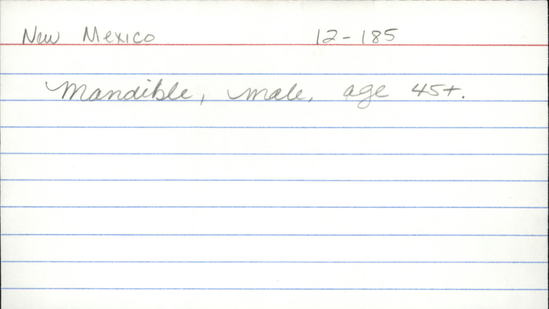 New Mexico 12-185
Mandible, male, age 45+.